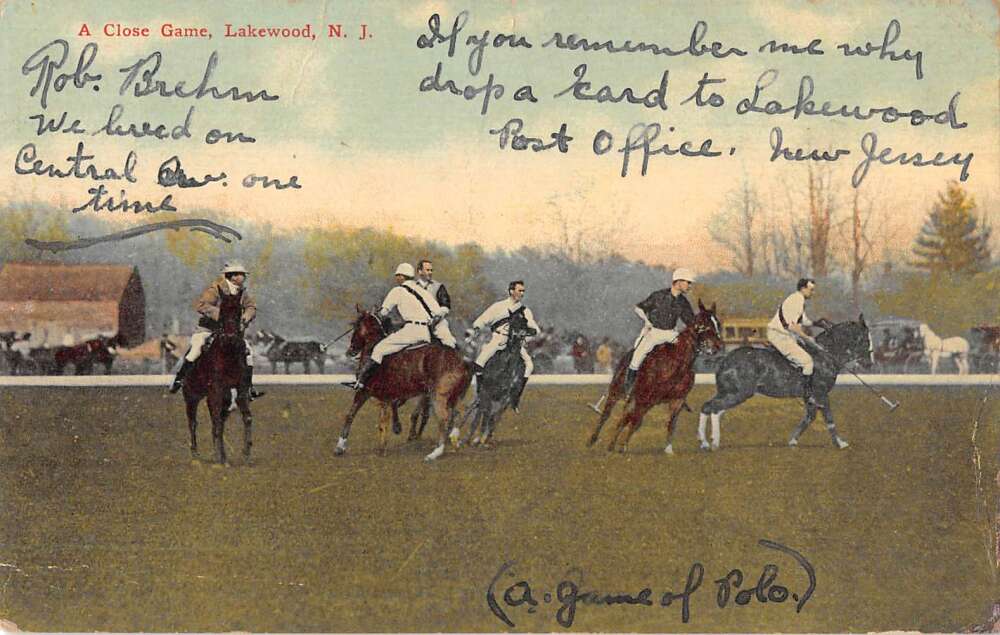 A Close Game, Lakewood, N. J.
Rob. Brehm
We lived on
Central Ave. one
time
If you remember me why
drop a card to Lakewood
Post Office. New Jersey
(A. Game of Polo.)